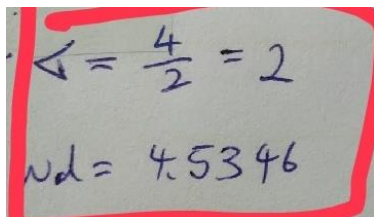 < = 4/2 = 2
Nd = 4.5346